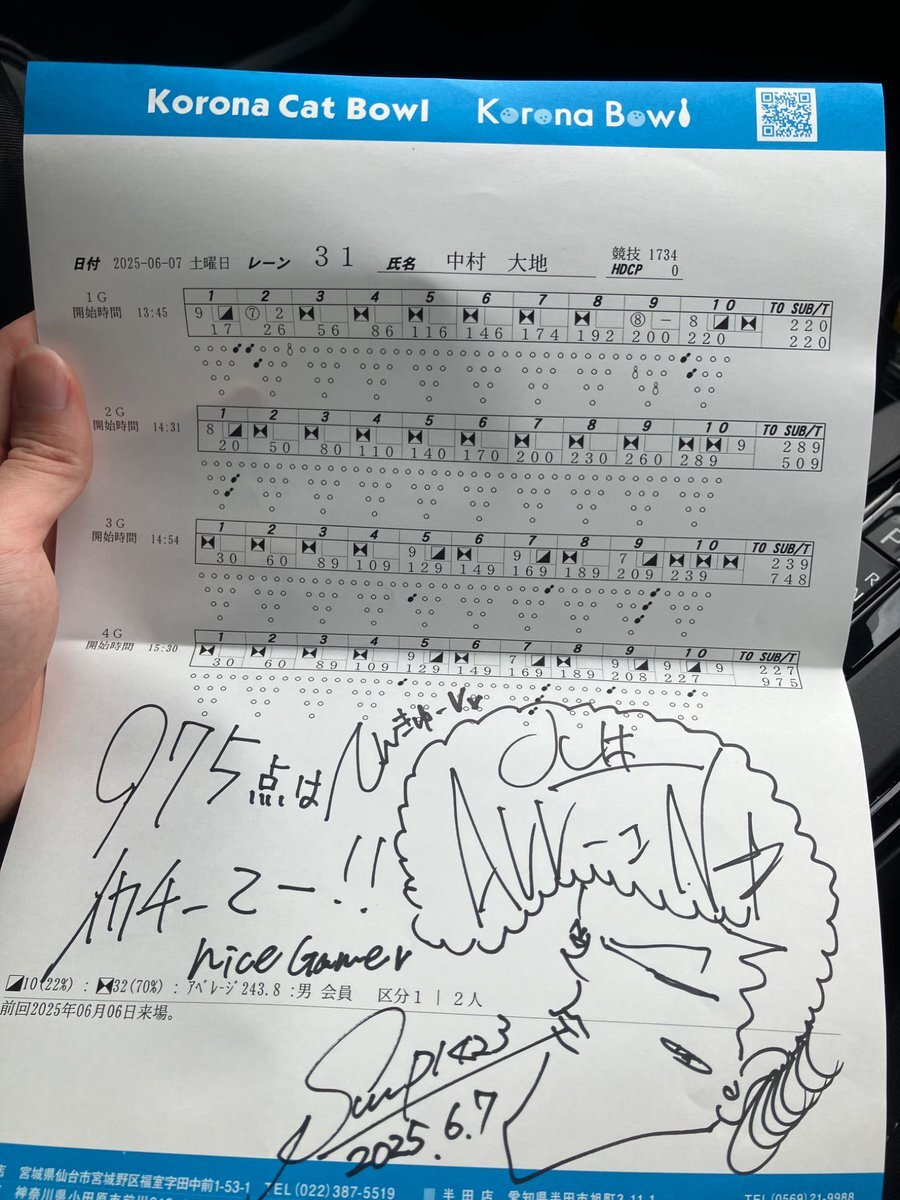 Korona Cat Bowl Korona Bowl
日付 2025-06-07 土曜日 レーン 31 氏名 中村 大地 競技 1734
HDCP 0
1G
開始時間 13:45
1 2 3 4 5 6 7 8 9 10 TO SUB/T
9 ⑦ 2 ⑧ - 8 220
17 26 56 86 116 146 174 192 200 220 220
2G
開始時間 14:31
1 2 3 4 5 6 7 8 9 10 TO SUB/T
8 9 289
20 50 80 110 140 170 200 230 260 289 509
3G
開始時間 14:54
1 2 3 4 5 6 7 8 9 10 TO SUB/T
9 9 7 239
30 60 89 109 129 149 169 189 209 239 748
4G
開始時間 15:30
1 2 3 4 5 6 7 8 9 10 TO SUB/T
9 7 9 9 9 227
30 60 89 109 129 149 169 189 208 227 975
975点は
イカチーてー!!
nice Gamer
10(22%) : 32(70%) : アベレージ243.8 :男 会員 区分1 | 2人
前回2025年06月06日来場。
2025.6.7
店 宮城県仙台市宮城野区福室字田中前1-53-1 TEL(022)387-5519
神奈川県小田原市前川
半田店 愛知県半田市旭町3-11-1
TEL(0569)21-9988